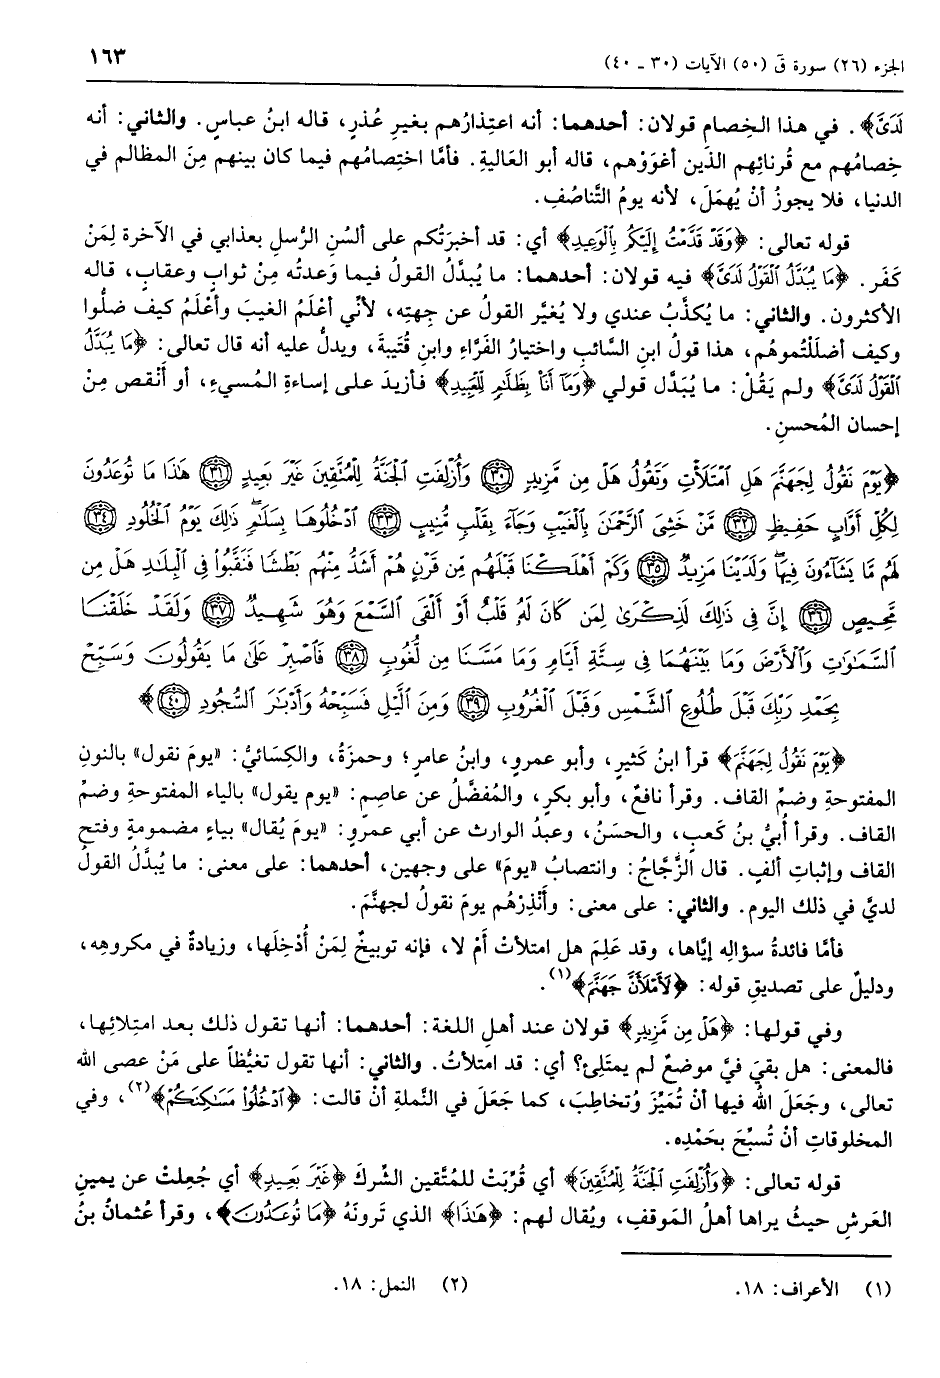 الجزء (٢٦) سورة قٓ (٥٠) الآيات (٣٠ - ٤٠) ١٦٣
لَدَىَّ﴾. في هذا الخِصامِ قولان: أحدهما: أنه اعتِذارُهم بغيرِ عُذرٍ، قاله ابنُ عباسٍ. والثاني: أنه
خِصامُهم مع قُرنائِهم الذين أغوَوْهم، قاله أبو العَالية. فأمَّا اختِصامُهم فيما كان بينهم مِنَ المظالم في
الدنيا، فلا يجوزُ أنْ يُهمَلَ، لأنه يومُ التَّناصُفِ.
قوله تعالى: ﴿وَقَدْ قَدَّمْتُ إِلَيْكُمْ بِالْوَعِيدِ﴾ أي: قد أخبَرَتُكم على ألسُنِ الرُّسلِ بعذابي في الآخرة لِمَنْ
كَفَر. ﴿مَا يُبَدَّلُ الْقَوْلُ لَدَىَّ﴾ فيه قولان: أحدهما: ما يُبدَّلُ القولُ فيما وَعدتُه مِنْ ثوابٍ وعقابٍ، قاله
الأكثرون. والثاني: ما يُكذَّبُ عندي ولا يُغيَّر القولُ عن جِهتِه، لأنِّي أعْلَمُ الغيبَ وأعْلَمُ كيف ضلُّوا
وكيف أضلَلْتُموهُم، هذا قولُ ابنِ السَّائبِ واختيارُ الفَرَّاءِ وابنِ قُتَيبةَ، ويدلُّ عليه أنه قال تعالى: ﴿مَا يُبَدَّلُ
الْقَوْلُ لَدَىَّ﴾ ولم يَقُلْ: ما يُبَدَّل قولي ﴿وَمَآ أَنَا۠ بِظَلَّٰمٍ لِّلْعَبِيدِ﴾ فأزيدَ على إساءةِ المُسيءِ، أو أَنْقصَ مِنْ
إحسان المُحسنِ.
﴿يَوْمَ نَقُولُ لِجَهَنَّمَ هَلِ ٱمْتَلَأْتِ وَتَقُولُ هَلْ مِن مَّزِيدٍ ﴿٣٠﴾ وَأُزْلِفَتِ ٱلْجَنَّةُ لِلْمُتَّقِينَ غَيْرَ بَعِيدٍ ﴿٣١﴾ هَٰذَا مَا تُوعَدُونَ
لِكُلِّ أَوَّابٍ حَفِيظٍ ﴿٣٢﴾ مَّنْ خَشِىَ ٱلرَّحْمَٰنَ بِٱلْغَيْبِ وَجَآءَ بِقَلْبٍ مُّنِيبٍ ﴿٣٣﴾ ٱدْخُلُوهَا بِسَلَٰمٍ ۖ ذَٰلِكَ يَوْمُ ٱلْخُلُودِ ﴿٣٤﴾
لَهُم مَّا يَشَآءُونَ فِيهَا ۖ وَلَدَيْنَا مَزِيدٌ ﴿٣٥﴾ وَكَمْ أَهْلَكْنَا قَبْلَهُم مِّن قَرْنٍ هُمْ أَشَدُّ مِنْهُم بَطْشًا فَنَقَّبُواْ فِى ٱلْبِلَٰدِ هَلْ مِن
مَّحِيصٍ ﴿٣٦﴾ إِنَّ فِى ذَٰلِكَ لَذِكْرَىٰ لِمَن كَانَ لَهُۥ قَلْبٌ أَوْ أَلْقَى ٱلسَّمْعَ وَهُوَ شَهِيدٌ ﴿٣٧﴾ وَلَقَدْ خَلَقْنَا
ٱلسَّمَٰوَٰتِ وَٱلْأَرْضَ وَمَا بَيْنَهُمَا فِى سِتَّةِ أَيَّامٍ وَمَا مَسَّنَا مِن لُّغُوبٍ ﴿٣٨﴾ فَٱصْبِرْ عَلَىٰ مَا يَقُولُونَ وَسَبِّحْ
بِحَمْدِ رَبِّكَ قَبْلَ طُلُوعِ ٱلشَّمْسِ وَقَبْلَ ٱلْغُرُوبِ ﴿٣٩﴾ وَمِنَ ٱلَّيْلِ فَسَبِّحْهُ وَأَدْبَٰرَ ٱلسُّجُودِ ﴿٤٠﴾﴾
﴿يَوْمَ نَقُولُ لِجَهَنَّمَ﴾ قرأ ابنُ كَثيرٍ، وأبو عمرٍو، وابنُ عامرٍ؛ وحمزَةُ، والكِسَائيُّ: «يومَ نقول» بالنونِ
المفتوحةِ وضمِّ القاف. وقرأ نافعٌ، وأبو بكرٍ، والمُفضَّلُ عن عاصِمٍ: «يوم يقول» بالياء المفتوحةِ وضمِّ
القاف. وقرأ أُبيُّ بنُ كَعبٍ، والحسَنُ، وعبدُ الوارث عن أبي عمرٍو: «يومَ يُقال» بياءٍ مضمومةٍ وفتحِ
القاف وإثباتِ ألفٍ. قال الزَّجَّاجُ: وانتصابُ «يومَ» على وجهين، أحدهما: على معنى: ما يُبدَّلُ القولُ
لديَّ في ذلك اليوم. والثاني: على معنى: وأَنْذِرْهُم يومَ نقولُ لجهنَّمَ.
فأمَّا فائدةُ سؤالِه إيَّاها، وقد عَلِمَ هل امتلأتْ أَمْ لا، فإنه توبيخٌ لِمَنْ أُدْخِلَها، وزيادةٌ في مكروهِه،
ودليلٌ على تصديقِ قوله: ﴿لَأَمْلَأَنَّ جَهَنَّمَ﴾(١).
وفي قولها: ﴿هَلْ مِن مَّزِيدٍ﴾ قولان عند أهلِ اللغة: أحدهما: أنها تقول ذلك بعد امتِلائِها،
فالمعنى: هل بقيَ فيَّ موضعٌ لم يمتَلِئ؟ أي: قد امتلأتُ. والثاني: أنها تقول تغيُّظاً على مَنْ عصى الله
تعالى، وجَعَلَ اللهُ فيها أنْ تُميِّزَ وُتخاطِبَ، كما جَعَلَ في النَّملةِ أنْ قالت: ﴿ٱدْخُلُواْ مَسَٰكِنَكُمْ﴾(٢)، وفي
المخلوقاتِ أنْ تُسبِّحَ بحَمْدِه.
قوله تعالى: ﴿وَأُزْلِفَتِ ٱلْجَنَّةُ لِلْمُتَّقِينَ﴾ أي قُرِّبَتْ للمُتَّقين الشِّركَ ﴿غَيْرَ بَعِيدٍ﴾ أي جُعِلتْ عن يمينِ
العَرشِ حيثُ يراها أهلُ المَوقفِ، ويُقال لهم: ﴿هَٰذَا﴾ الذي تَرونَهُ ﴿مَا تُوعَدُونَ﴾، وقرأ عُثمانُ بنُ
(١) الأعراف: ١٨. (٢) النمل: ١٨.